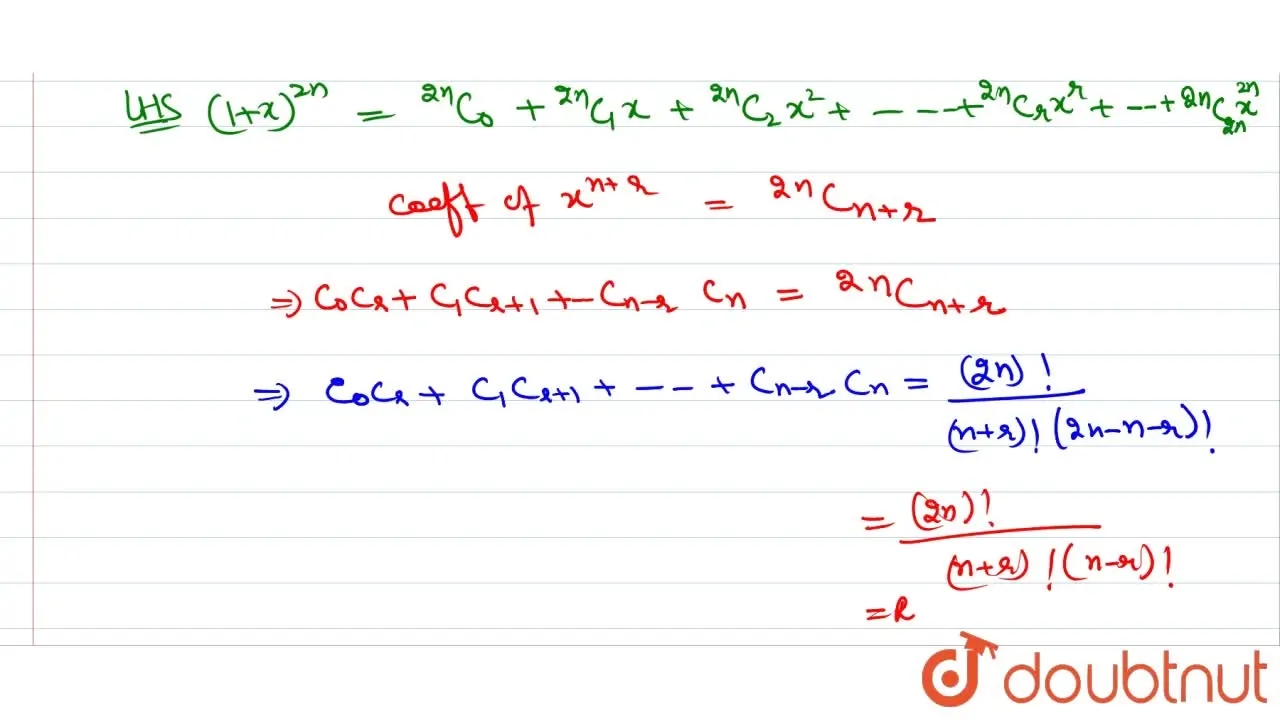 LHS (1+x)^{2n} = ^{2n}C_0 + ^{2n}C_1 x + ^{2n}C_2 x^2 + - - - - + ^{2n}C_r x^r + - - + ^{2n}C_{2n} x^{2n}
coeff of x^{n+r} = ^{2n}C_{n+r}
⇒ C_0C_r + C_1C_{r+1} + - C_{n-r} C_n = ^{2n}C_{n+r}
⇒ C_0C_r + C_1C_{r+1} + - - - + C_{n-r} C_n = (2n)! / (n+r)! (2n-n-r)!
= (2n)! / (n+r)! (n-r)!
= R
doubtnut